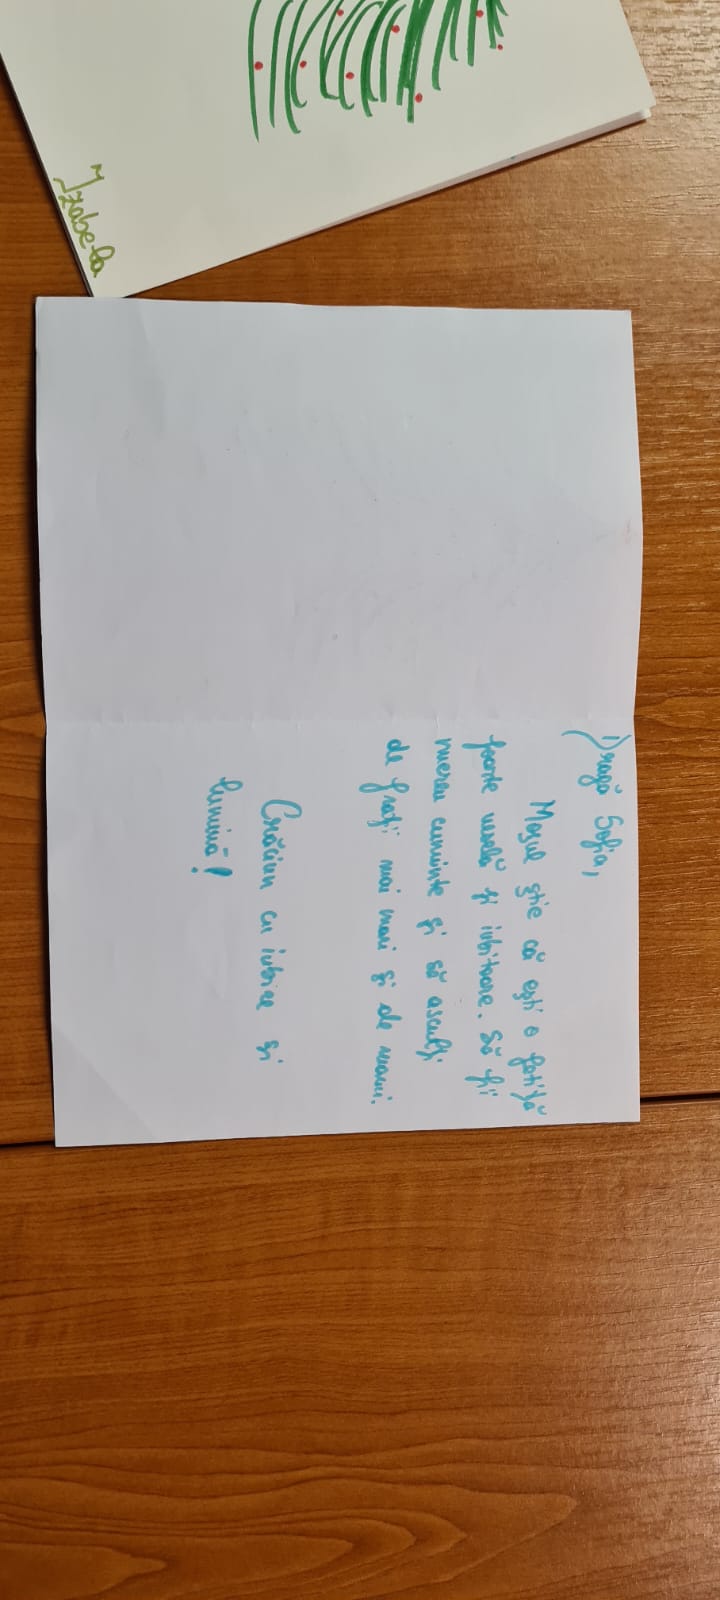 Izabela
Dragă Sofia,
Moșul știe că ești o fetiță
foarte veselă și iubitoare. Să fii
mereu cuminte și să asculți
de frați mai mari și de mami.
Crăciun cu iubire și
lumină!